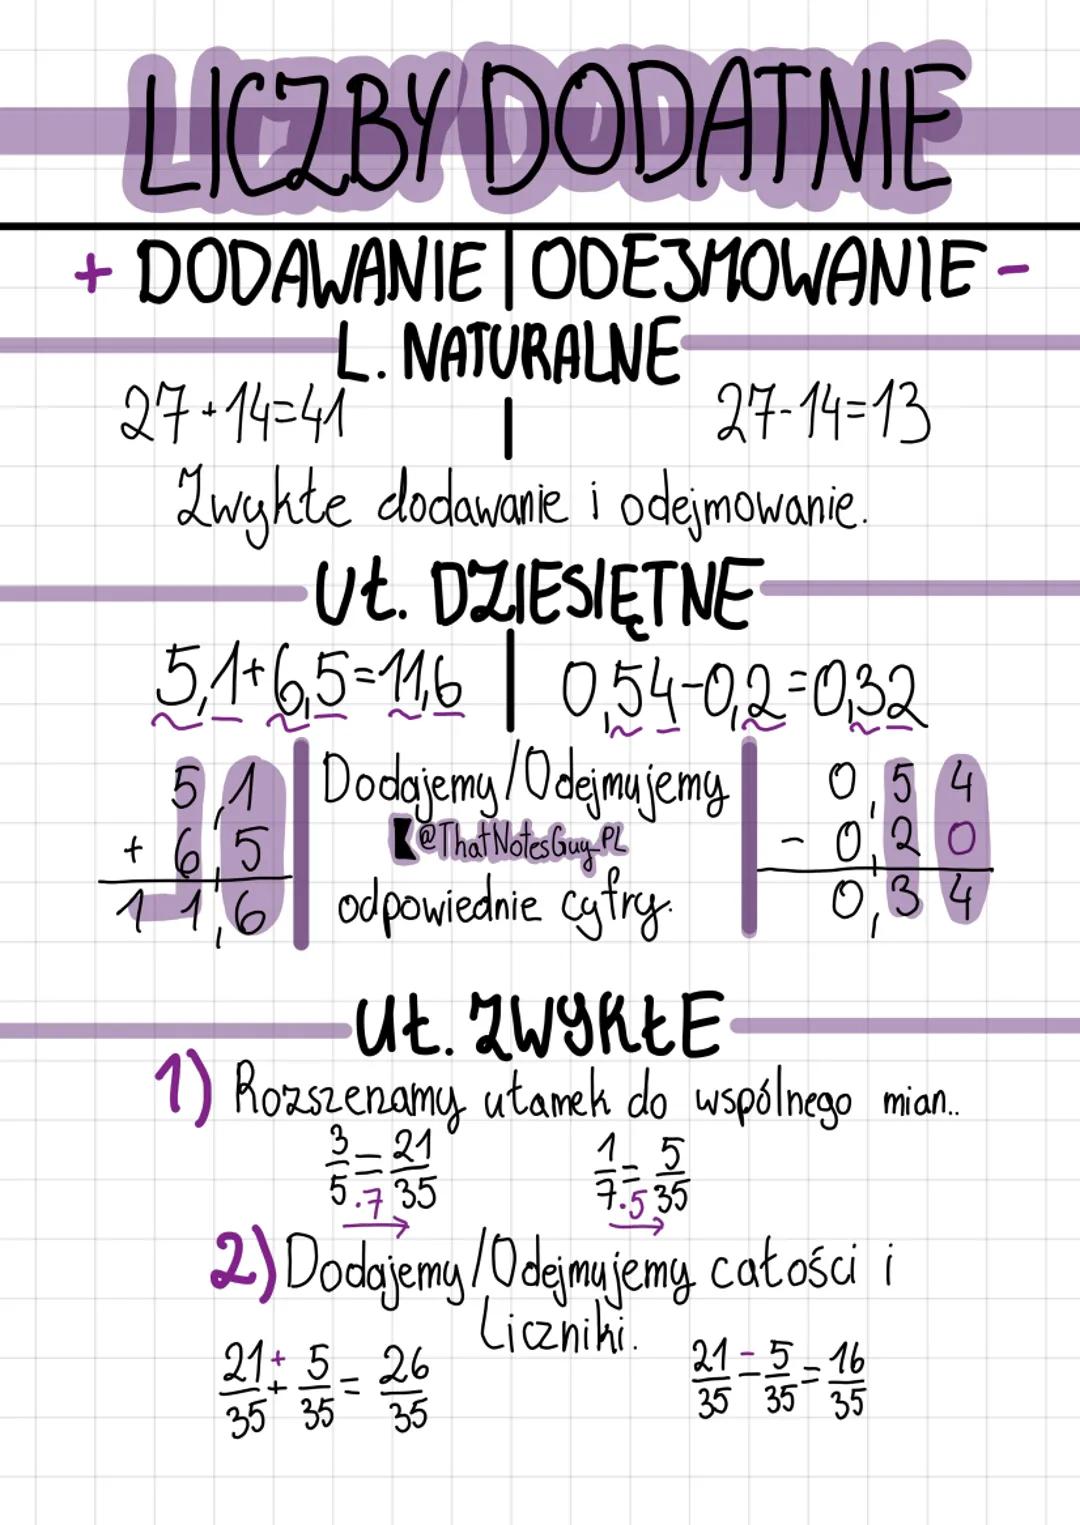 LICZBY DODATNIE
+ DODAWANIE | ODEJMOWANIE -
L. NATURALNE
27+14=41 | 27-14=13
Zwykłe dodawanie i odejmowanie.
Uł. DZIESIĘTNE
5,1+6,5=11,6 | 0,54-0,2=0,32
Dodajemy/Odejmujemy
@ThatNotesGuy_PL
odpowiednie cyfry.
5,1
+ 6,5
11,6
0,54
- 0,20
0,34
Uł. ZWYKŁE
1) Rozszerzamy ułamek do wspólnego mian..
3/5 = 21/35
.7
1/7 = 5/35
.5
2) Dodajemy/Odejmujemy całości i
liczniki.
21/35 + 5/35 = 26/35
21/35 - 5/35 = 16/35